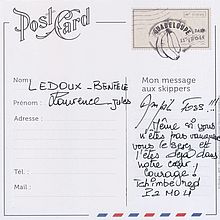 Post Card
GUADELOUPE
Nom : LEDOUX - BENTELE
Prénom : Laurence - Jules
Adresse :
Tél. :
Mail :
Mon message
aux skippers
Même si vous
n'êtes pas vainqueur
vous le serez et
l'êtes déjà dans
notre cœur.
Courage !
Tchimbé red